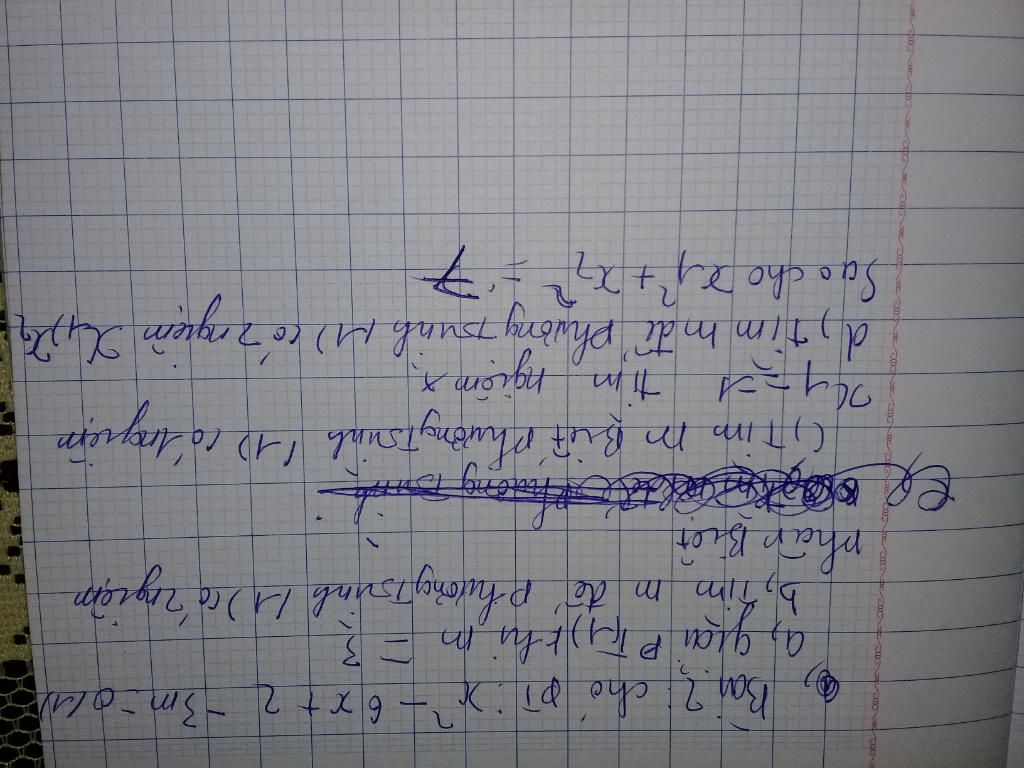 Bài 2: cho pt: x² - 6x + 2 - 3m = 0 (1)
a, giải PT(1) khi m = 3
b, Tìm m để phương trình (1) có 2 ngiệm
phân Biệt
c, Tìm m Biết phương trình (1) có 1 ngiệm
x1 = -1 tìm ngiệm x
d, tìm m để phương trình (1) có 2 ngiệm x1, x2
Sao cho x1² + x2² = 7